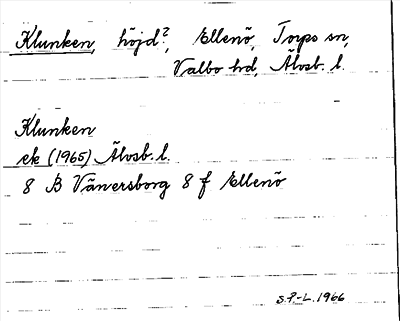 Klunken, höjd?, Ellenö, Torps sn,
Valbo hd, Älvsb. l.
Klunken
ek (1965) Älvsb. l.
8 B Vänersborg 8 f Ellenö
S.P-L. 1966